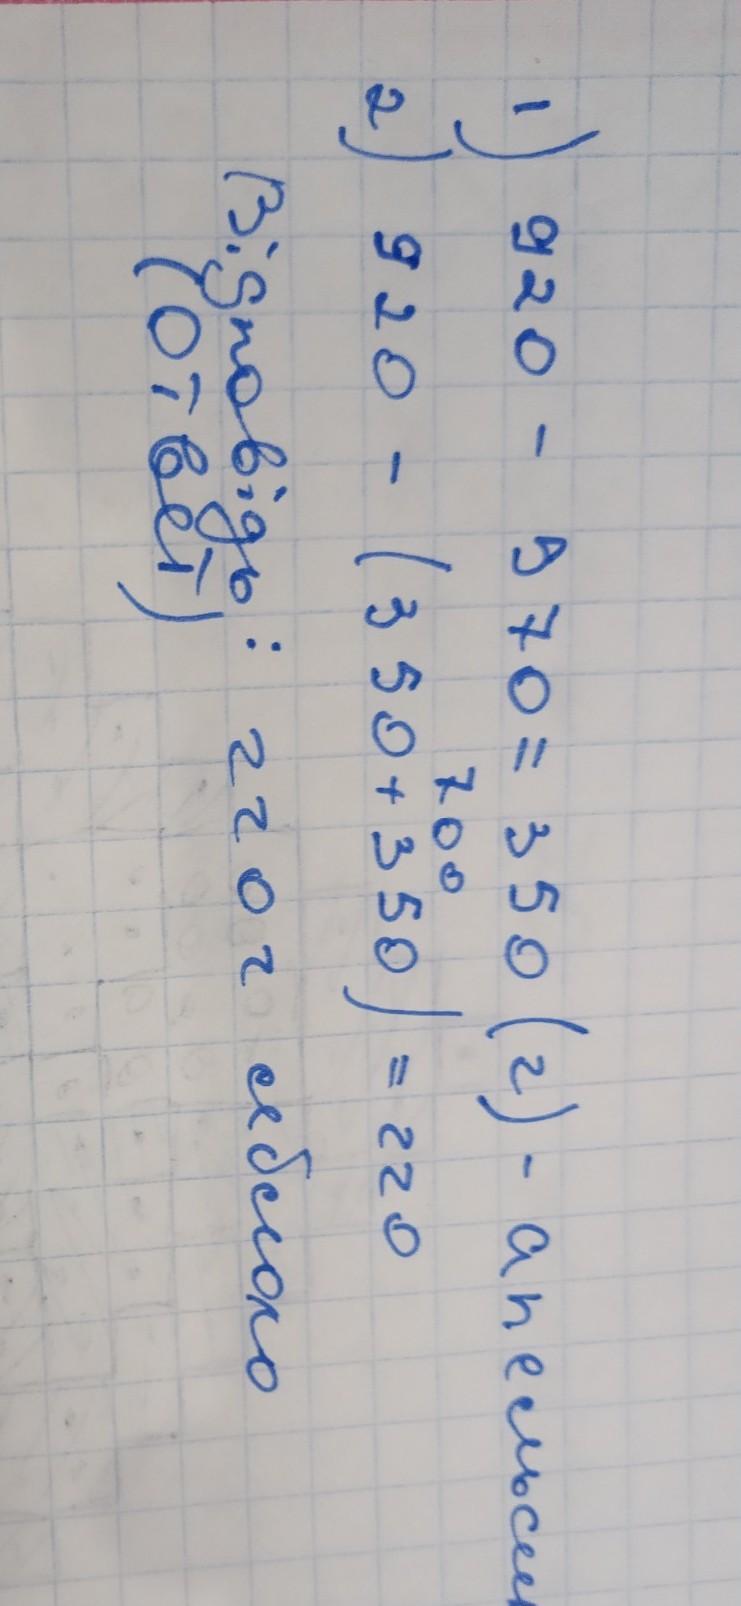 1) 920 - 570 = 350 (г) - апельсин
700
2) 920 - (350+350) = 220
Відповідь: 220 г яблоко
(Ответ)